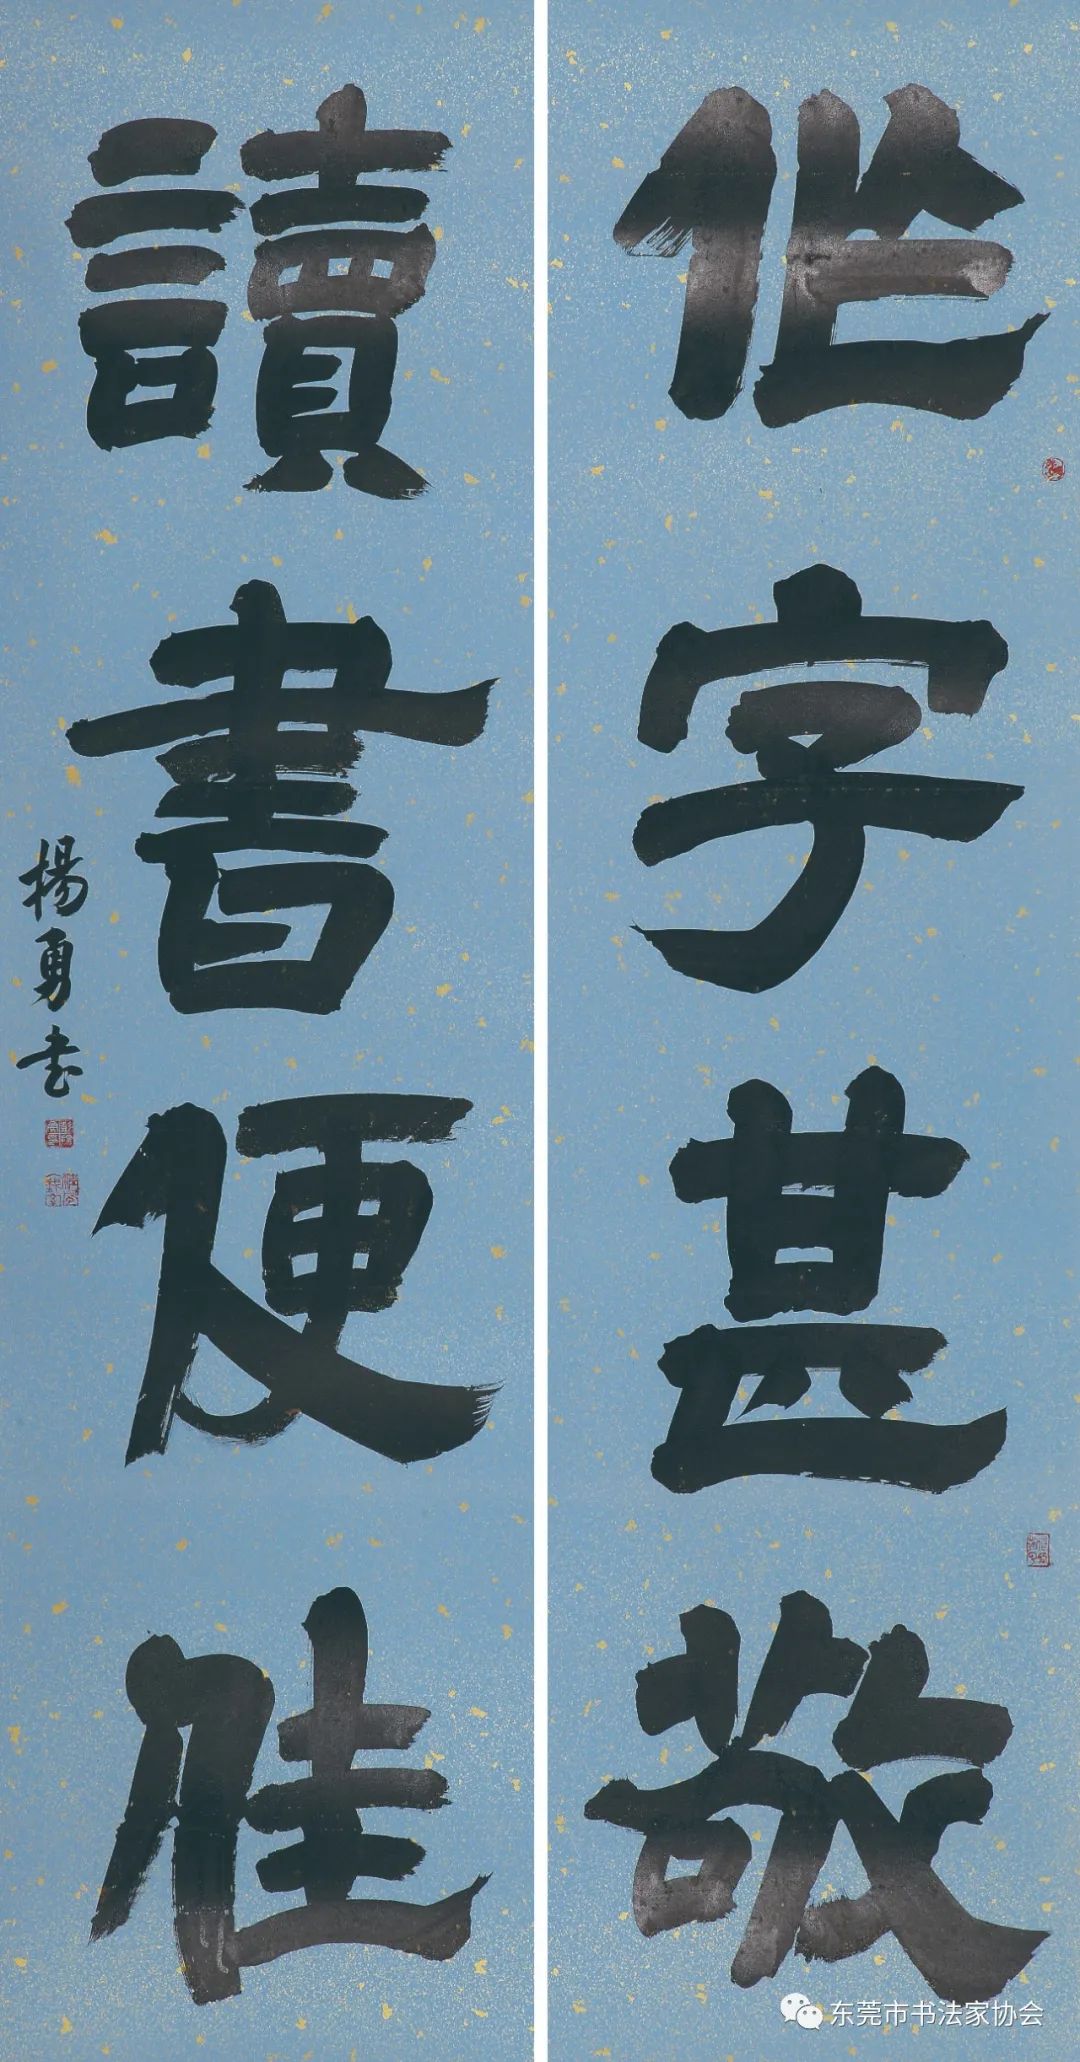 作字甚敬
讀書便佳
楊勇书
东莞市书法家协会